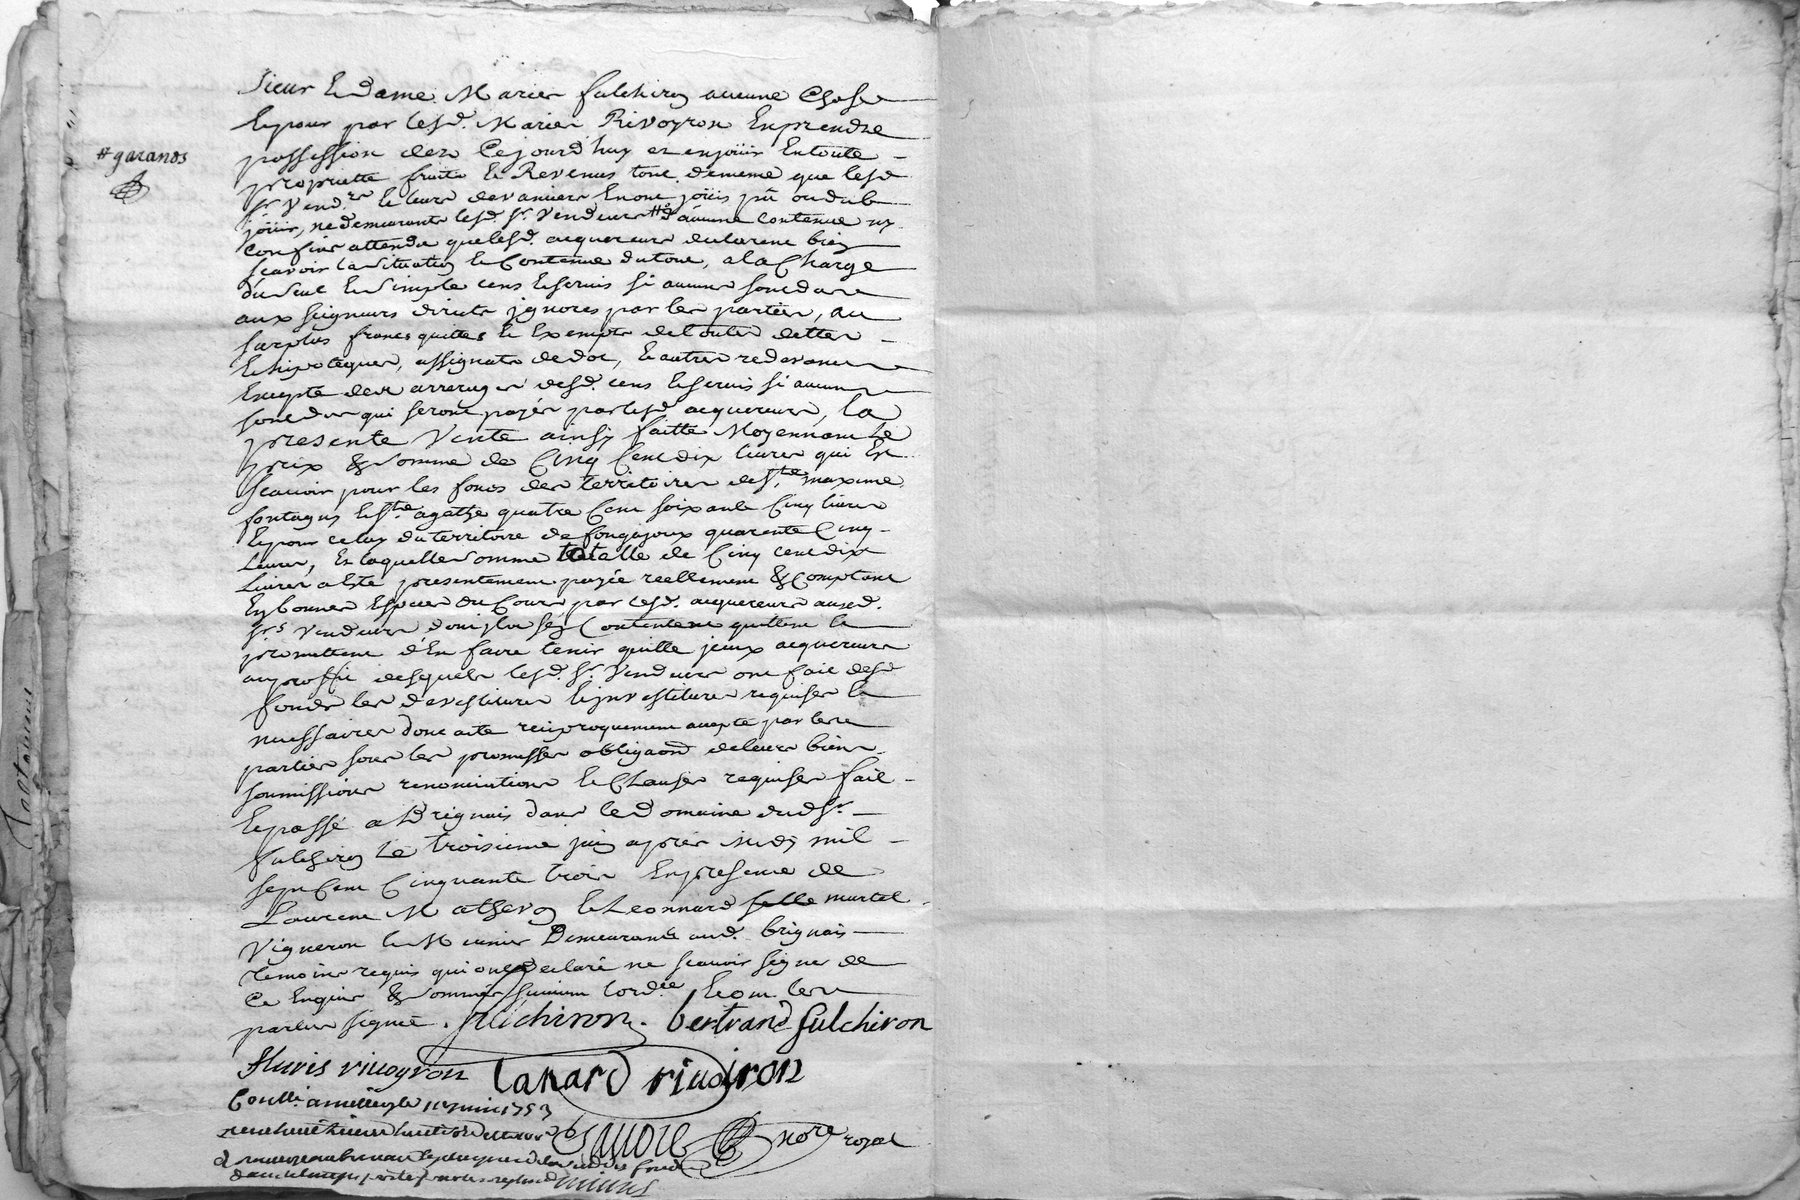 Sieur & Dame Maries fulchiron aucune Chose
& pour par lesd. Maries Rivoyron En prendre
possession dez Cejourd'huy et en joüir En toute
#garands
proprietté fruits & Revenus tout de meme que lesd.
srs. Vendrs. & leurs devanciers En ont joüis pû ou dub
joüir, ne demeurants lesd. srs. Vendeurs # d'aucune contenue ny
Confins attendu que lesd. acquereurs declarent bien
scavoir la situation & Contenue du tout, a la Charge
du seul & simple cens & servis si aucuns sont dus
aux seigneurs directs jgnorés par les parties, au
surplus francs quittes & Exempts de toutes dettes
& hipoteques, assignats de dot, & autres redevances
Excepté des arrerages desd. cens & servis si aucuns
sont dus qui seront payés par lesd. acquereurs, la
presente Vente ainsy faitte Moyennant Le
prix & somme de Cinq Cent dix livres qui Est
scavoir pour les fonds des territoires de ste. maxime
fontagus & ste. agathe quatre Cent soixante Cinq livres
& pour celuy du territoire de fongajoux quarente Cinq
Livres, & laquelle somme totalle de Cinq cent dix
Livres a Esté presentement payée reellement & Comptant
En bonnes Especes du Cours par lesd. acquereurs auxd.
srs. Vendeurs dont plus sen Contentent quittent &
promettent d'En faire tenir quitte jceux acquereurs
au proffit desquels lesd. srs. Vendeurs ont fait desd.
fonds les devestitures & jnvestitures requises &
necessaires dont acte reciproquement accepté par les
parties sous les promesses obligaons. de leurs biens
soumissions renonciations & Clauses requises fait
& passé a Brignais dans le Domaine dud. sr.
fulchiron Le troisieme juin apres midy mil
sept Cent Cinquante trois En presence de
Laurent Matheron & Leonnard martel
Vigneron & Meunier Demeurants aud. brignais
temoins requis qui ont declaré ne scavoir signer de
Ce Enquis & sommés suivant l'ord.ce & ont les
parties signé. fulchiron. bertrand fulchiron
fluris riuoyron Lanard riuoiron
Conllé. a millery le juin 1753
nore royal